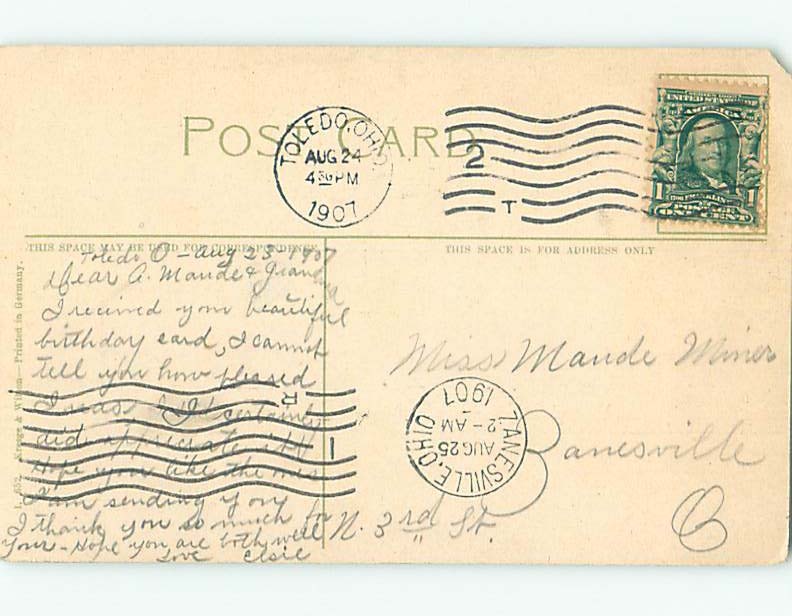 POST CARD
TOLEDO, OHIO.
AUG 24
4 30 PM
1907
2
T
UNITED STATES OF
AMERICA
1 FRANKLIN 1
POSTAGE
ONE CENT
THIS SPACE MAY BE USED FOR CORRESPONDENCE
THIS SPACE IS FOR ADDRESS ONLY
Toledo O - Aug 23 1907
Dear A. Maude & Grandma
I received your beautiful
birthday card, I cannot
tell you how pleased
I was & I certainly
did appreciate it
Hope you like the ones
I am sending you
I thank you so much for
Your - Hope you are both well
Love Elsie
Printed in Germany.
R
1
Miss Maude Miner
Zanesville
N. 3rd St.
O
ZANESVILLE, OHIO
AUG 25
2 - AM
1907